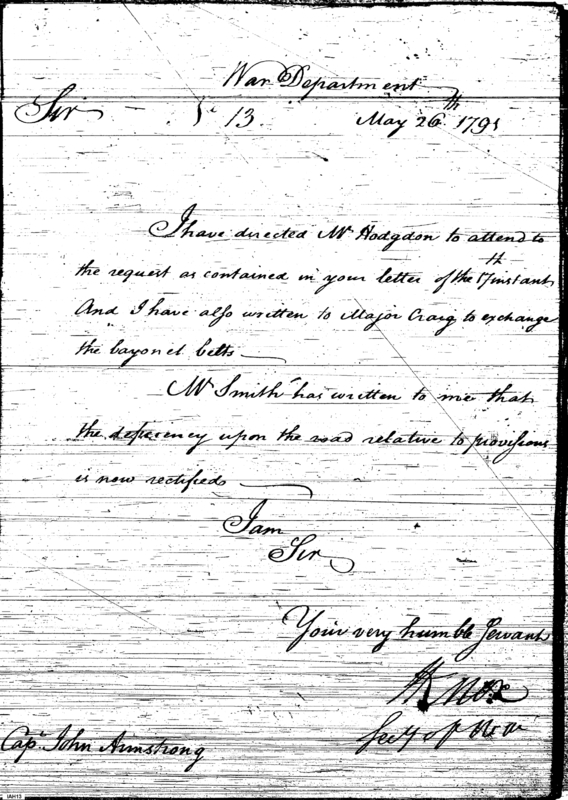 War Department
Sir 13. May 26th 1791
I have directed Mr Hodgdon to attend to
the request as contained in your letter of the 17th instant
And I have also written to Major Craig to exchange
the bayonet belts
Mr Smith has written to me that
the deficiency upon the road relative to provisions
is now rectified
I am
Sir
Your very humble Servant
HKnox
Secy of War
Capt John Armstrong
IAH13